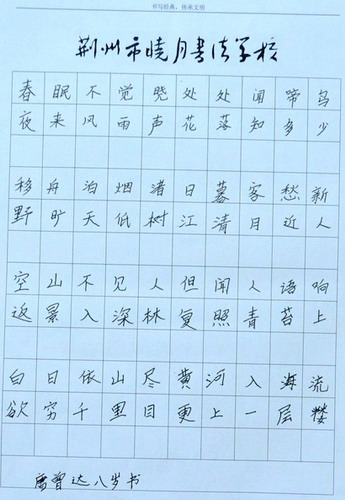 书写经典，传承文明
荆州市晓月书法学校
春眠不觉晓处处闻啼鸟
夜来风雨声花落知多少
移舟泊烟渚日暮客愁新
野旷天低树江清月近人
空山不见人但闻人语响
返景入深林复照青苔上
白日依山尽黄河入海流
欲穷千里目更上一层楼
曾达八岁书